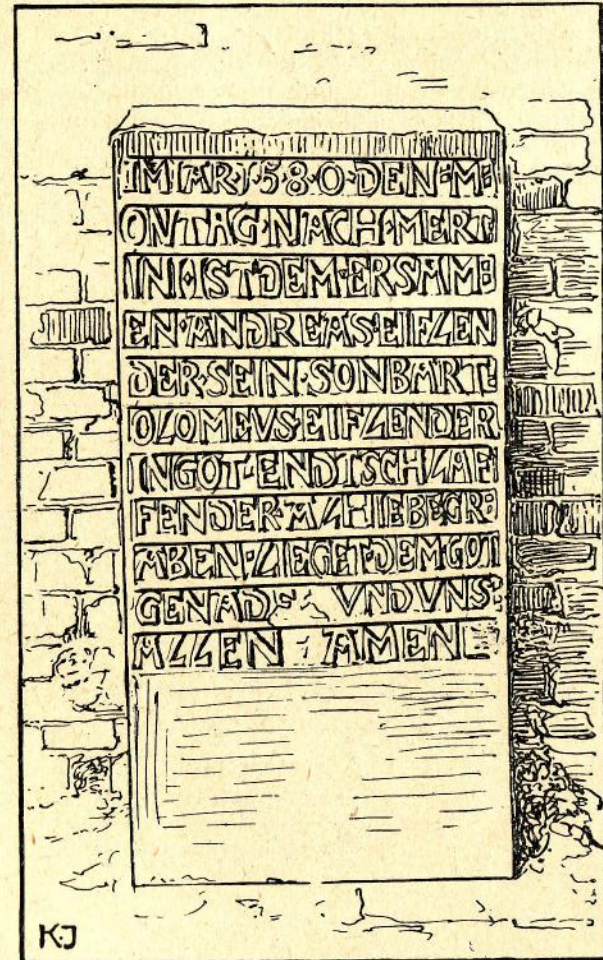 IM IAR 1·5·8·0·DEN·M:
ONTAG·NACH·MERT:
IN·IST·DEM·ERSAMM:
EN·ANDREAS·EIFLEN
DER·SEIN·SON BART:
OLOMEVS·EIFLENDER
IN GOT·ENDTSCHLAF
FEN DER·ALHIE BEGR:
ABEN·LIEGET·DEM GOT
GENAD VND VNS:
ALLEN AMEN
K·J